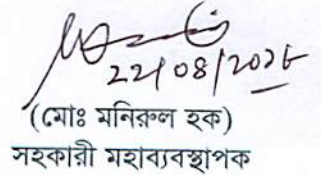 22/08/2025
(মোঃ মনিরুল হক)
সহকারী মহাব্যবস্থাপক